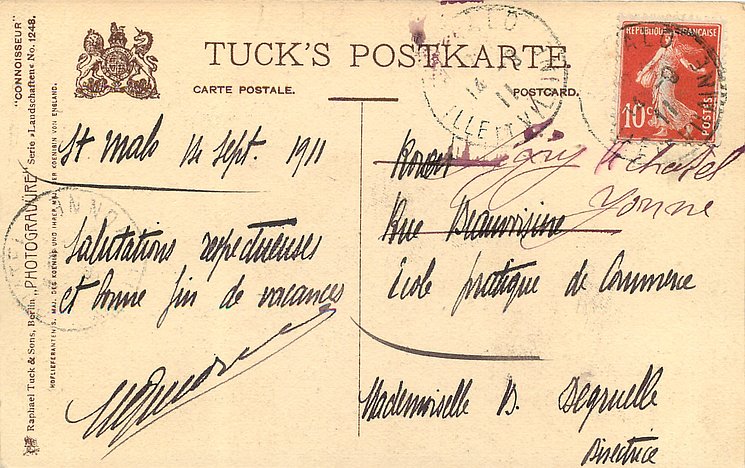 "CONNOISSEUR"
Serie »Landschaften« No. 1248.
Raphael Tuck & Sons, Berlin „PHOTOGRAVÜRE"
HOFLIEFERANTEN S. MAJ. DES KOENIGS UND IHRER MAJ. DER KOENIGIN VON ENGLAND.
TUCK'S POSTKARTE.
CARTE POSTALE.
POSTCARD.
REPUBLIQUE FRANÇAISE
10c
POSTES
ILLE ET VILAINE
St Malo 13 Sept. 1911
Salutations respectueuses
et bonne fin de vacances
Rouen
Yonne
Rue Beauvoisine
Ecole pratique de Commerce
Mademoiselle B. Degruelle
Directrice